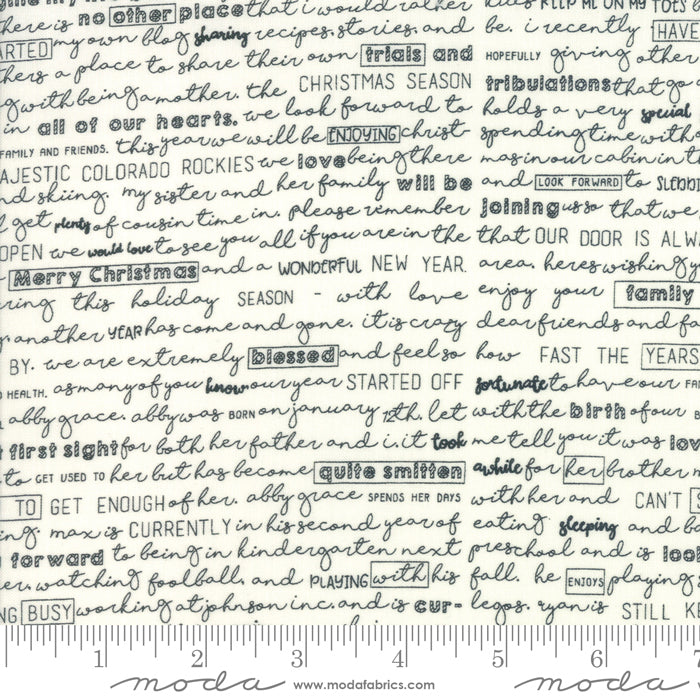 there is no other place that i would rather
ARTED my own blog sharing recipes, stories, and be. i recently HAVE
a place to share their own trials and HOPEFULLY giving other
with being a mother. the CHRISTMAS SEASON tribulations that go
in all of our hearts. we look forward to holds a very special
FAMILY AND FRIENDS. this year we will be ENJOYING christ- spending time with
AJESTIC COLORADO ROCKIES we love being there mas in our cabin in
nd skiing. my sister and her family will be and LOOK FORWARD to
get plenty of cousin time in. please remember joining us so that we
OPEN we would love to see you all if you are in the that OUR DOOR IS ALWA
Merry Christmas and a WONDERFUL NEW YEAR. area. heres wishing
ring this holiday SEASON - with love enjoy your family
another YEAR has come and gone. it is crazy dear friends and fa
BY. we are extremely blessed and feel so how FAST THE YEARS
HEALTH. as many of you know our year STARTED OFF fortunate to have our FA
abby grace. abby was BORN on january 12th. let with the birth of our
first sight for both her father and i. it took me tell you it was lov
to GET USED TO her but has become quite smitten awhile for her brother
TO GET ENOUGH of her. abby grace SPENDS HER DAYS with her and CAN'T
ing. max is CURRENTLY in his second year of eating sleeping and ba
forward to being in kindergarten next preschool and is loo
er. watching foolball. and PLAYING with his fall. he ENJOYS playing
NG BUSY working at johnson inc. and is cur- legos. ryan is STILL KE
1 2 3 4 5 6 7
moda www.modafabrics.com moda